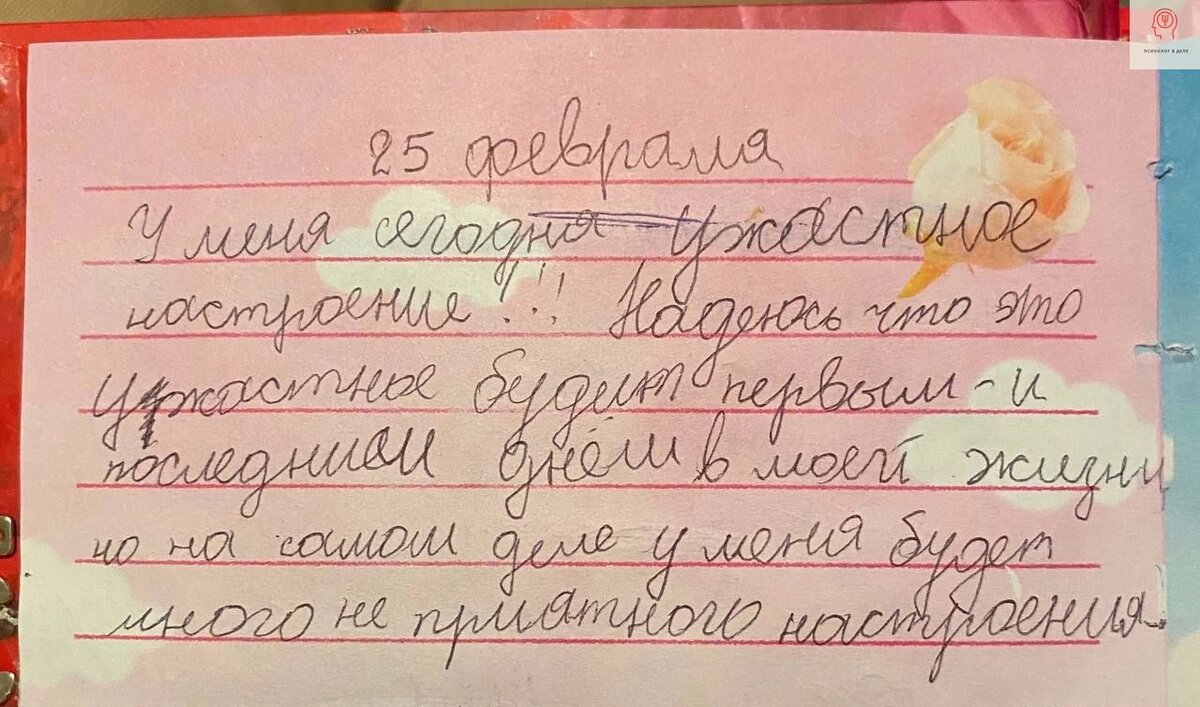 ПСИХОЛОГ В ДЕЛЕ
25 февраля
У меня сегодня ужастное
настроение!!! Надеюсь что это
ужастное будит первым - и
последнием днём в моей жизни
но на самом деле у меня будет
много не приятного настроения.